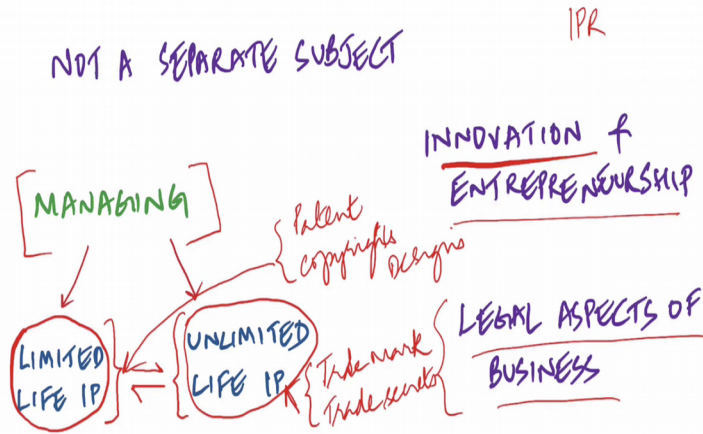 IPR
NOT A SEPARATE SUBJECT
INNOVATION &
ENTREPRENEURSHIP
MANAGING
Patent
Copyrights
Designs
LIMITED
LIFE IP
UNLIMITED
LIFE IP
Trade mark
Trade secrets
LEGAL ASPECTS OF
BUSINESS